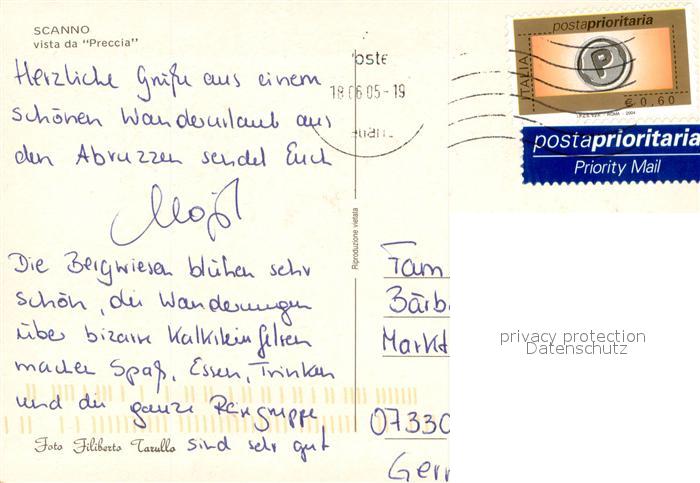 SCANNO
vista da "Preccia"
Herzliche Grüße aus einem
schönen Wanderurlaub aus
den Abruzzen sendet Euch
Die Bergwiesen blühen sehr
schön, die Wanderungen
über bizarre Kalksteinfelsen
machen Spaß, Essen, Trinken
und die ganze Reisegruppe
sind sehr gut
Foto Filiberto Tarullo
Riproduzione vietata
oste
18 06 05-19
postaprioritaria
ITALIA
P
€ 0,60
I.P.Z.S. S.p.A. - ROMA - 2004
postaprioritaria
Priority Mail
Fam
Bärb
Markt
07330
Gerr
privacy protection
Datenschutz